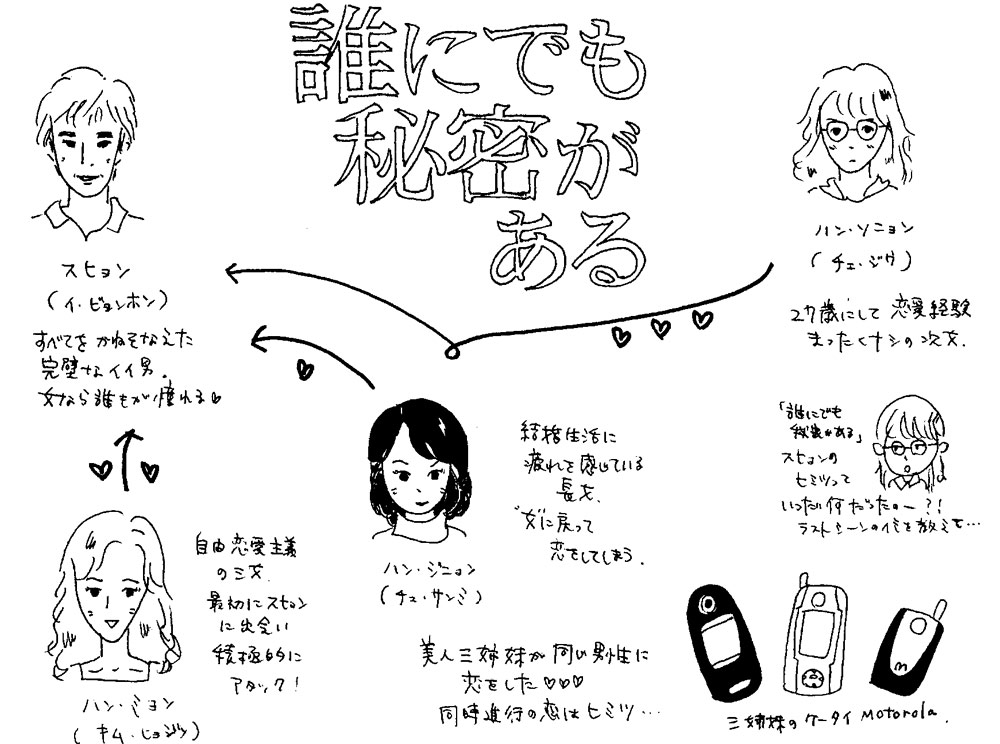 誰にでも
秘密が
ある
スヒョン
(イ・ビョンホン)
すべてをかねそなえた
完璧なイイ男.
女なら誰もが憧れる♡
ハン・ソニョン
(チェ・ジウ)
27歳にして恋愛経験
まったくナシの次女.
結婚生活に
疲れを感じている
長女.
“女”に戻って
恋をしてしまう.
ハン・ジニョン
(チュ・サンミ)
「誰にでも
秘密がある」
スヒョンの
ヒミツって
いったい何だったのー?!
ラストシーンのイミを教えて…
自由恋愛主義
の三女.
最初にスヒョン
に出会い
積極的に
アタック!
ハン・ミヨン
(キム・ヒョジン)
美人三姉妹が同じ男性に
恋をした♡♡♡
同時進行の恋はヒミツ…
三姉妹のケータイ Motorola.